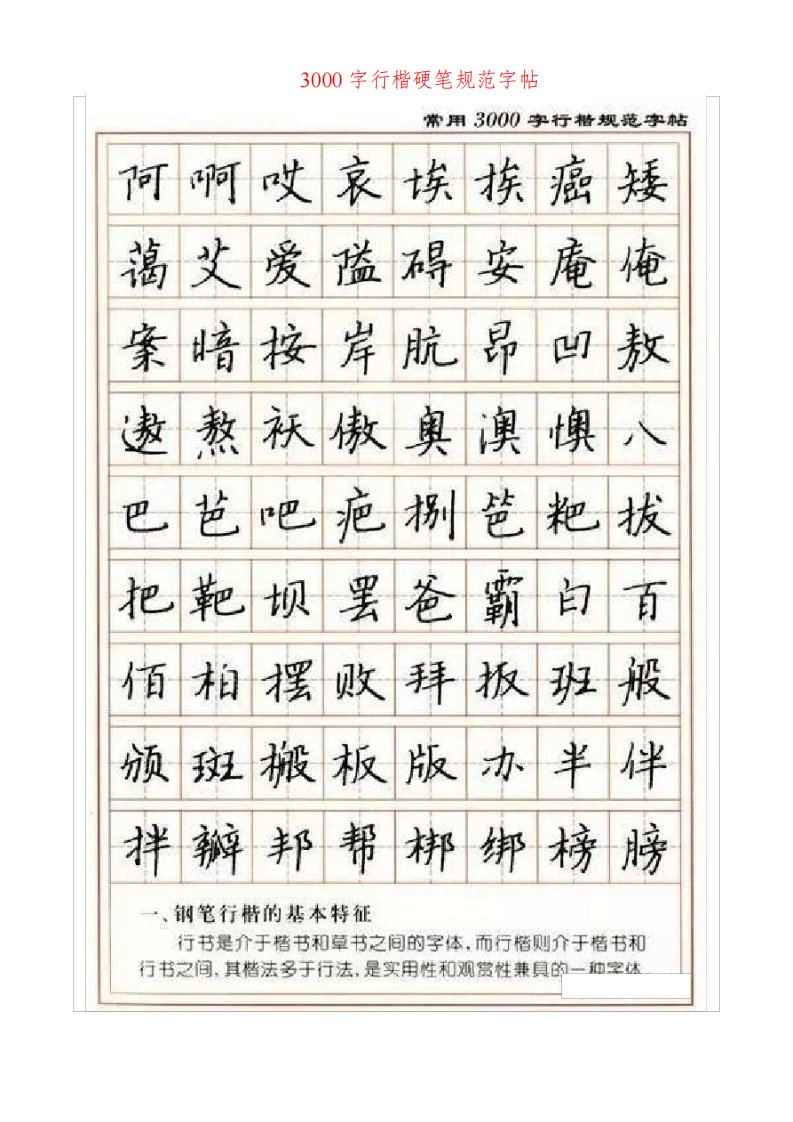 3000 字行楷硬笔规范字帖
常用 3000 字行楷规范字帖
阿啊哎哀埃挨癌矮
蔼艾爱隘碍安庵俺
案暗按岸肮昂凹敖
遨熬袄傲奥澳懊八
巴芭吧疤捌笆粑拔
把靶坝罢爸霸白百
佰柏摆败拜扳班般
颁斑搬板版办半伴
拌瓣邦帮梆绑榜膀
一、钢笔行楷的基本特征
行书是介于楷书和草书之间的字体，而行楷则介于楷书和
行书之间，其楷法多于行法，是实用性和观赏性兼具的一种字体。